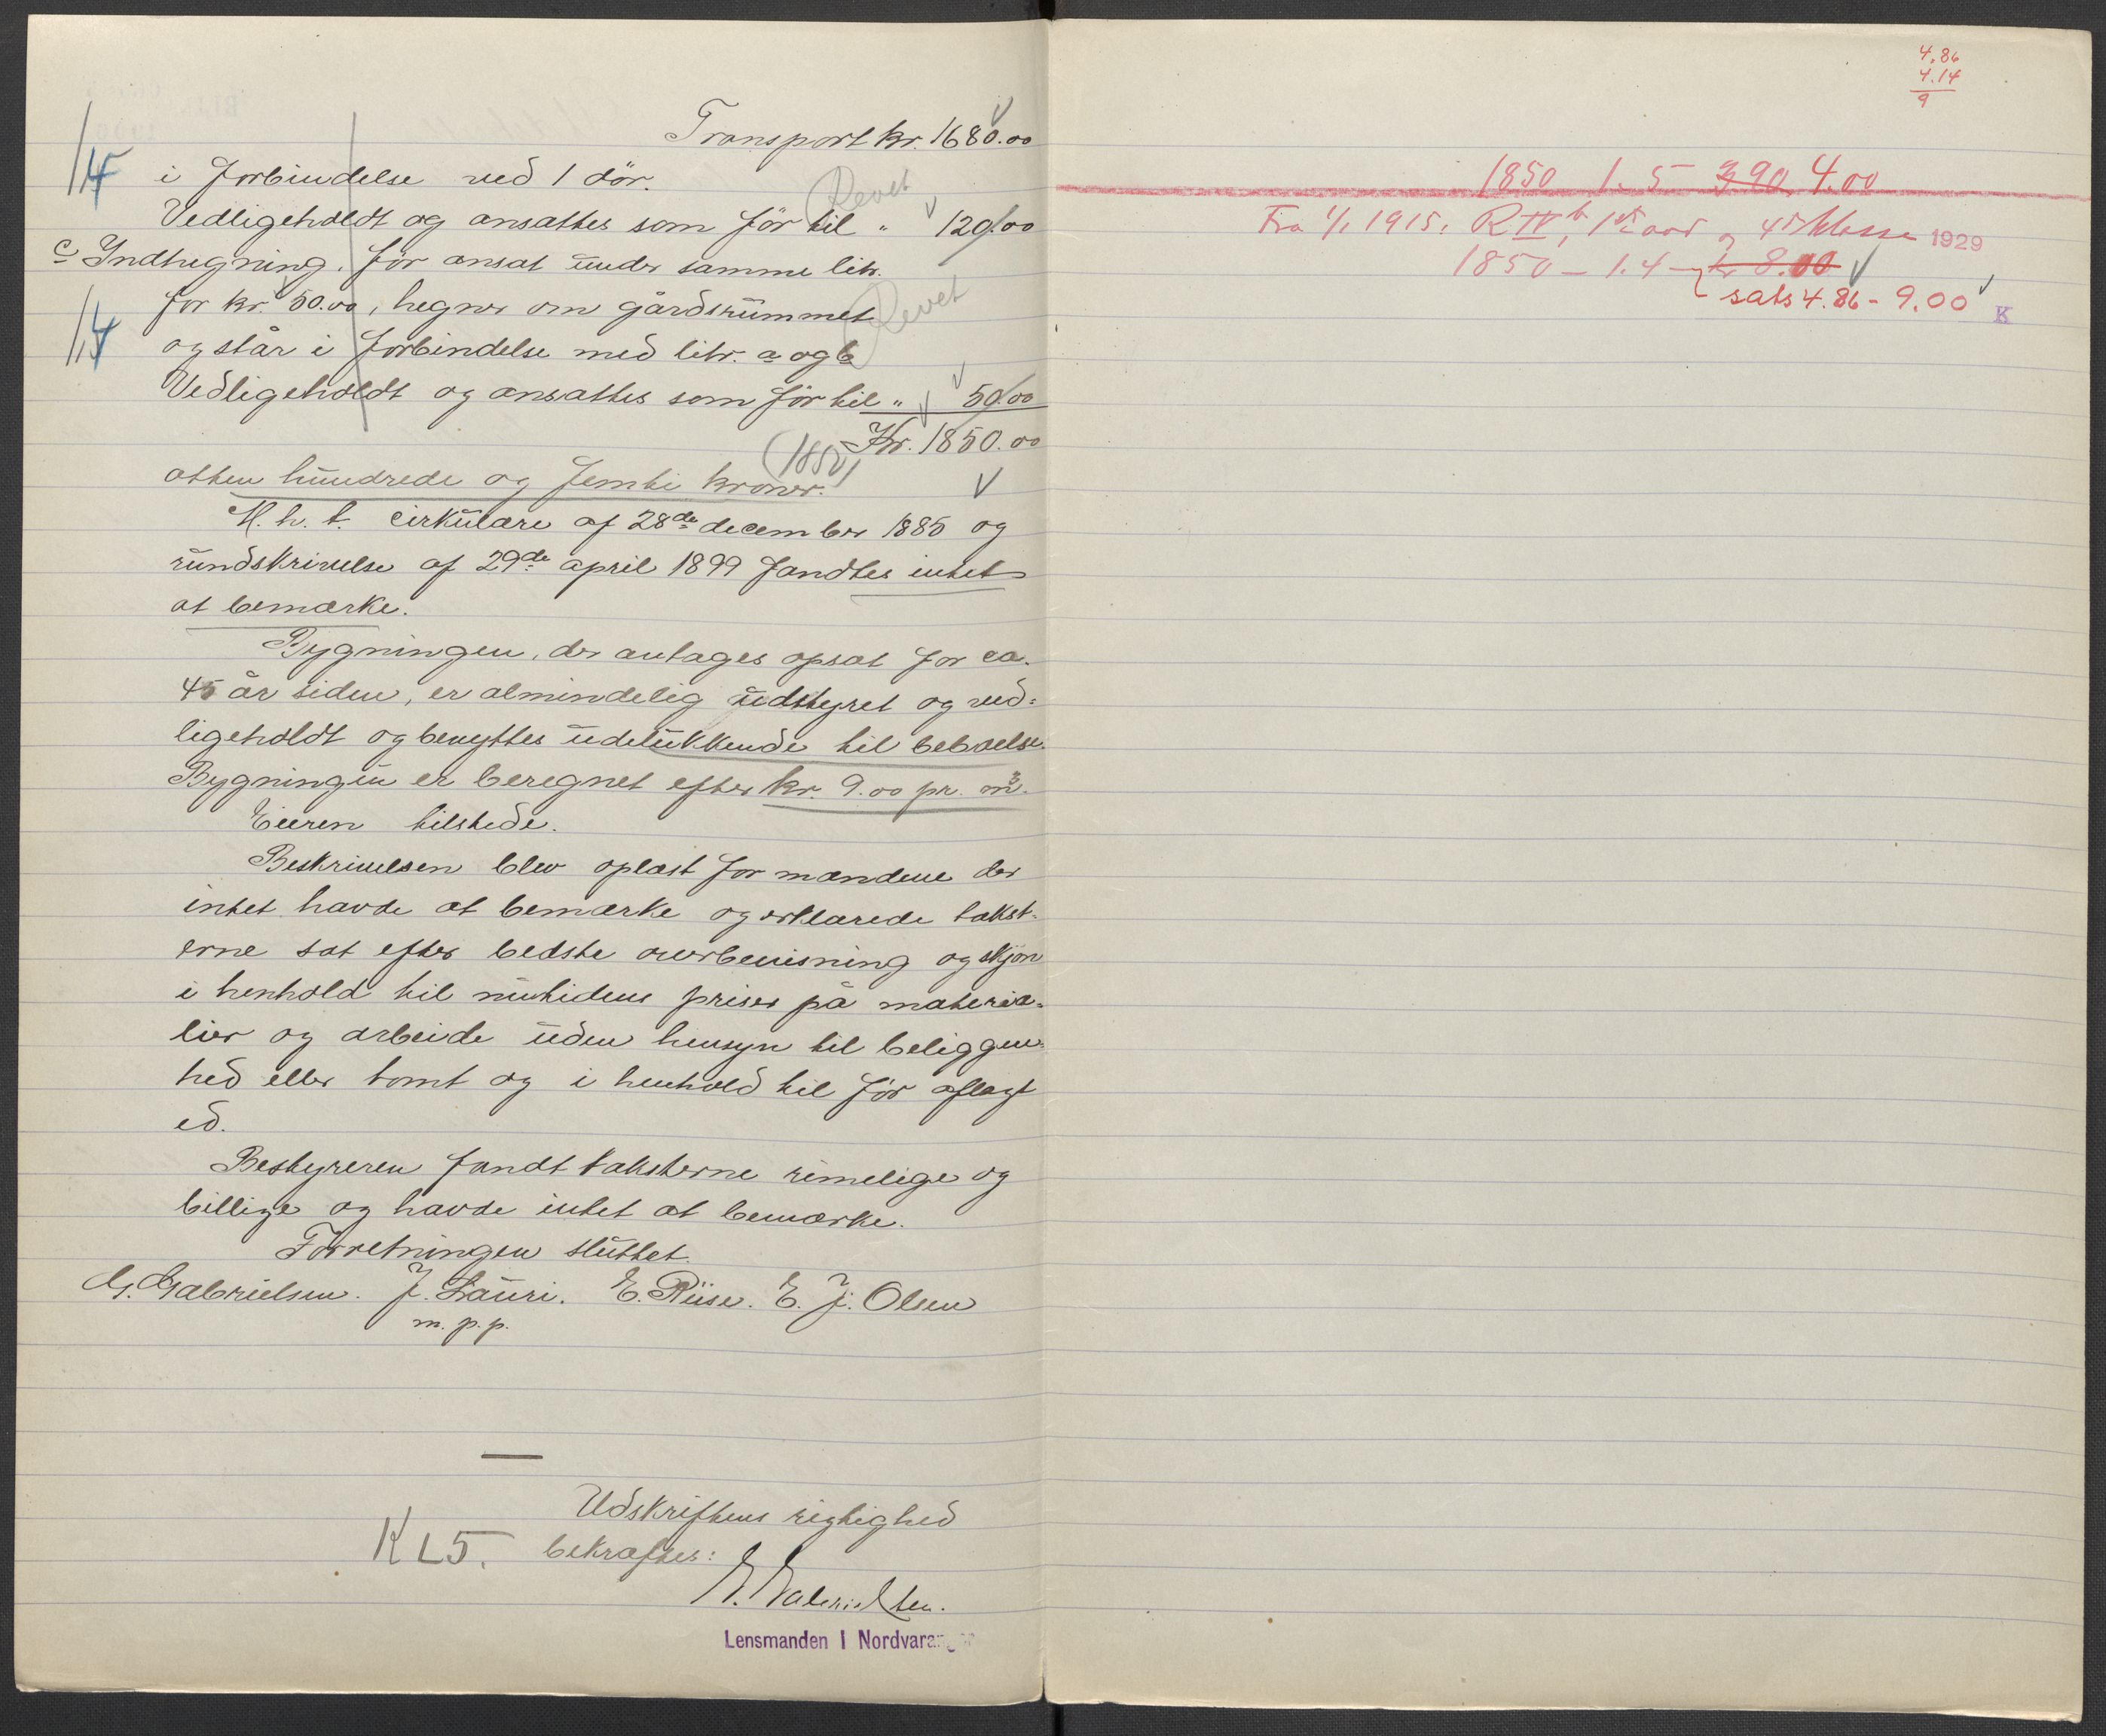 Transport kr. 1680.00
1/4 i forbindelse ved 1 dör.
Revet
Vedligeholdt og ansattes som för til " 120.00
c Indhegning, för ansat under samme litr.
for kr. 50.00, hegner om gårdsrummet
Revet
1,4 og står i forbindelse med litr. a og b
Vedligeholdt og ansattes som för til " 50.00
(1850) Kr. 1850.00
atten hundrede og femti kroner.
M. h. t. cirkulære af 28de december 1885 og
rundskrivelse af 29de april 1899 fandtes intet
at bemærke.
Bygningen, der antages opsat for ca.
45 år siden, er almindelig udstyret og ved=
ligeholdt og benyttes udelukkende til beboelse.
Bygningen er beregnet efter kr. 9.00 pr. m².
Eieren tilstede.
Beskrivelsen blev oplæst for mændene der
intet havde at bemærke og erklærede takst=
erne sat efter bedste overbevisning og skjön
i henhold til nutidens priser på materia=
lier og arbeide uden hensyn til beliggen=
hed eller tomt og i henhold til för aflagt
ed.
Bestyreren fandt taksterne rimelige og
billige og havde intet at bemærke.
Forretningen sluttet.
G. Gabrielsen. J. Lauri. E. Riise. E. J. Olsen
m. p. p.
Udskriftens rigtighed
KL5. bekræftes:
G. Gabrielsen.
Lensmanden i Nordvaranger
4.86
4.14
9
1850 1.5 3.90 4.00
Fra 1/1 1915. R IV b, 1ste ard og 4de klasse 1929
1850 - 1.4 - kr 8.00
sats 4.86 - 9.00 K